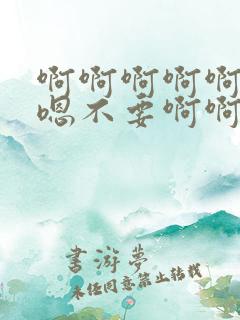 啊啊啊啊啊
嗯不要啊啊
書游夢
未经同意禁止转载